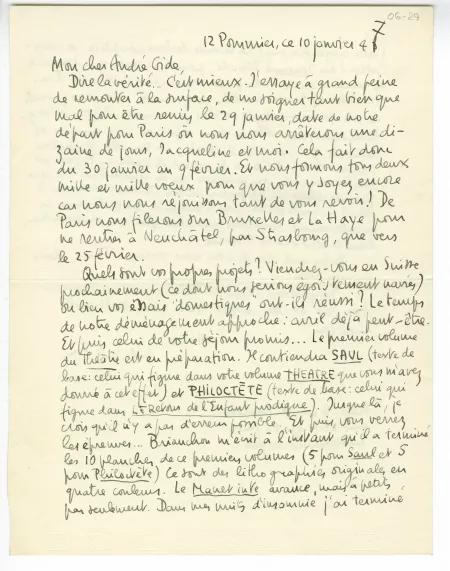 06-29
12 Pommier, ce 10 janvier 47
Mon cher André Gide,
Dire la vérité... C'est mieux. J'essaye à grand peine
de remonter à la surface, de me soigner tant bien que
mal pour être remis le 29 janvier, date de notre
départ pour Paris où nous nous arrêterons une di-
zaine de jours, Jacqueline et moi. Cela fait donc
du 30 janvier au 9 février. Et nous formons tous deux
mille et mille voeux pour que vous y soyez encore
car nous nous réjouissons tant de vous revoir! De
Paris nous filerons sur Bruxelles et La Haye pour
ne rentrer à Neuchâtel, par Strasbourg, que vers
le 25 février.
Quels sont vos propres projets? Viendrez-vous en Suisse
prochainement (ce dont nous serions égoïstement ravis)
ou bien vos essais "domestiques" ont-ils réussi? Le temps
de notre déménagement approche: avril déjà peut-être.
Et puis celui de votre séjour promis... Le premier volume
du théâtre est en préparation. Il contiendra SAUL (texte de
base: celui qui figure dans votre volume THEATRE que vous m'avez
donné à cet effet) et PHILOCTÈTE (texte de base: celui qui
figure dans LE Retour de l'Enfant prodigue). Jusque là, je
crois qu'il n'y a pas d'erreur possible. Et puis vous verrez
les épreuves... Brianchon m'écrit à l'instant qu'il a terminé
les 10 planches de ce premier volumes (5 pour Saul et 5
pour Philoctète) Ce sont des lithographies originales en
quatre couleurs. Le Manet inte avance, mais à petits
pas seulement. Dans mes nuits d'insomnie j'ai terminé